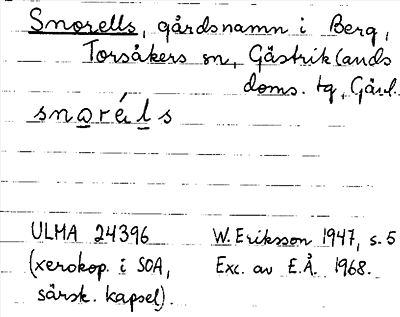 Snorells, gårdsnamn i Berg,
Torsåkers sn, Gästriklands
doms. tg, Gävl.
snoréls
ULMA 24396 W. Eriksson 1947, s. 5
(xerokop. i SOA, Exc. av E.Å. 1968.
särsk. kapsel).